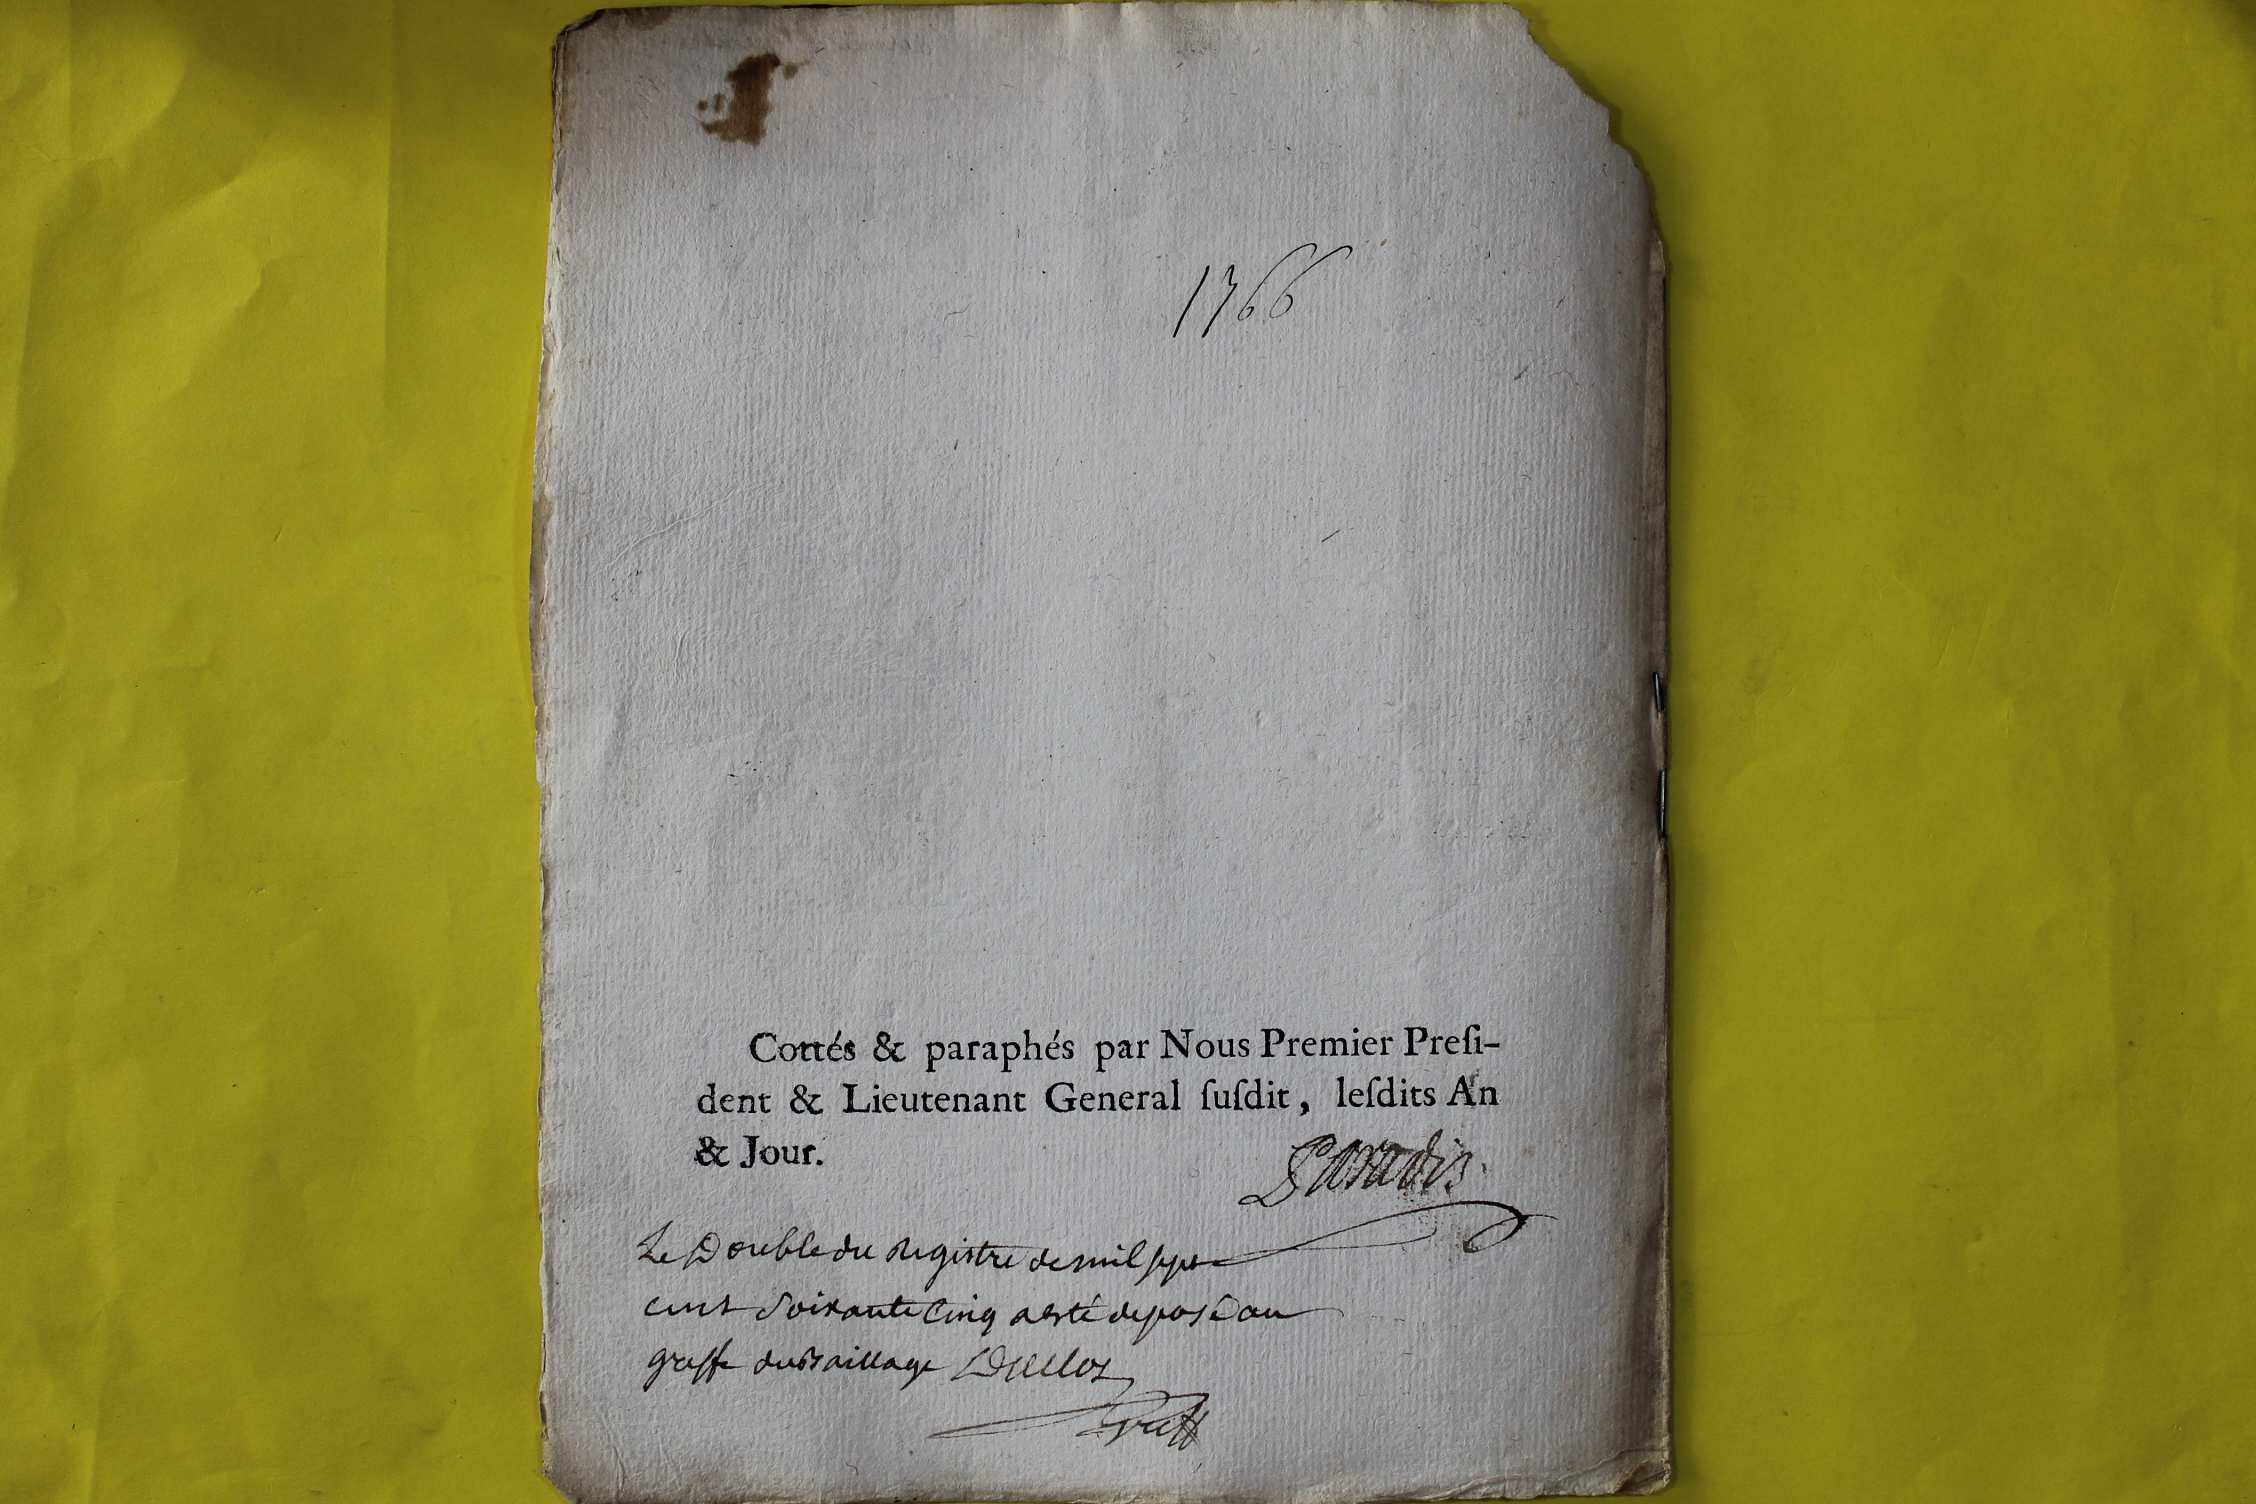 1766
Cottés & paraphés par Nous Premier Preſi-
dent & Lieutenant General ſuſdit, leſdits An
& Jour.
Paradis
Le Double du Registre de mil sept
cent Soixante Cinq a esté deposé au
greffe du Baillage Duclos
Greff